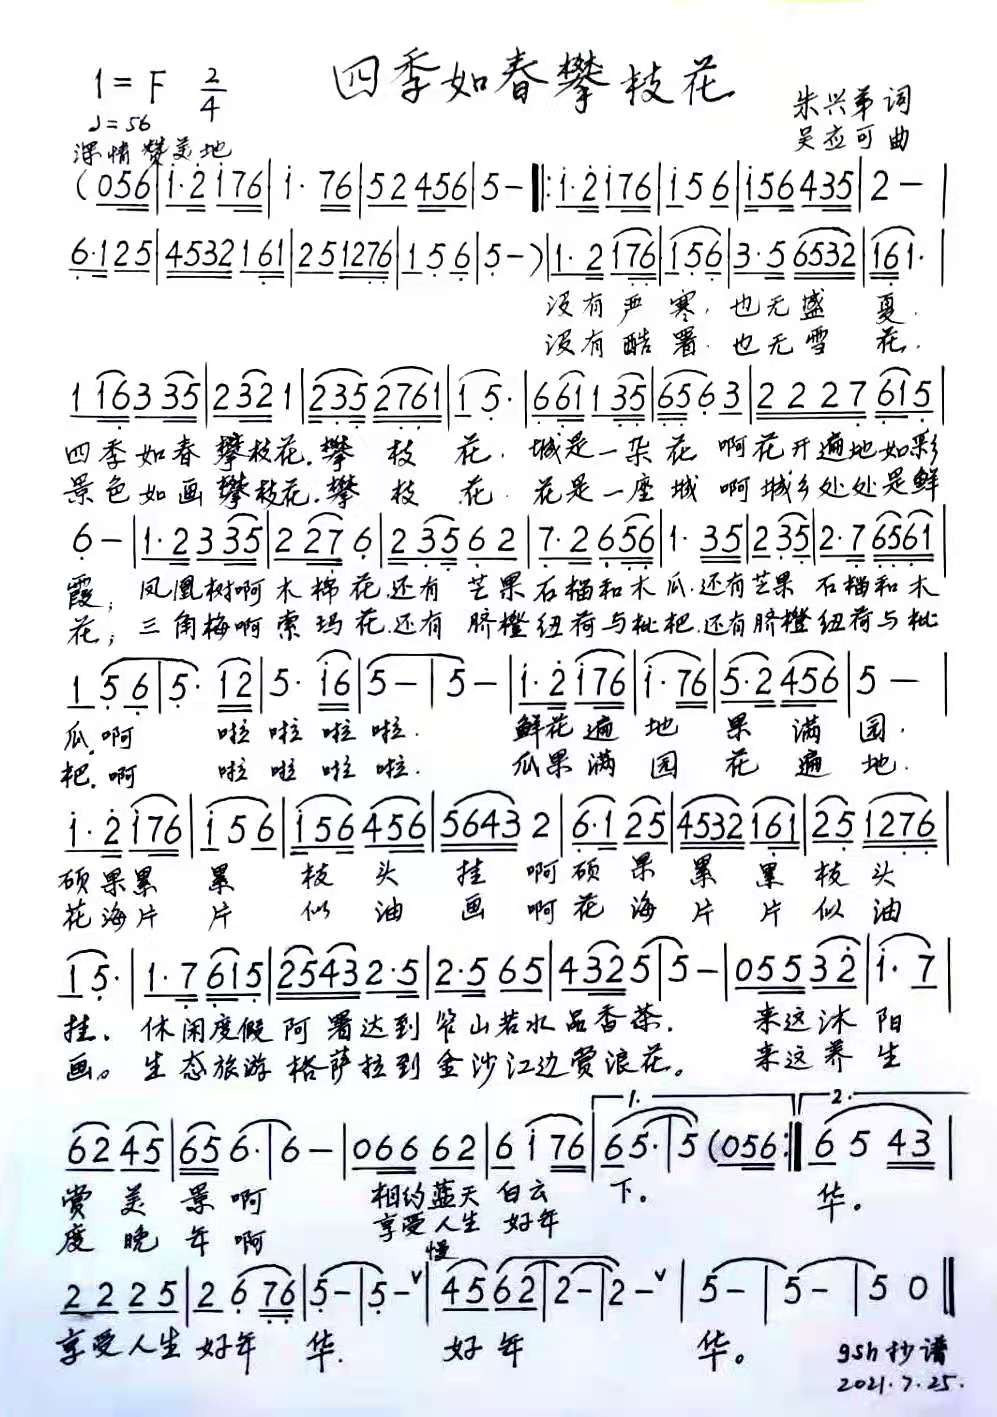 四季如春攀枝花
1=F 2/4
♩=56
朱兴弟 词
吴应可 曲
深情赞美地
(056|1·2176|1·76|52456|5-‖:1·2176|156|156435|2-|
6·125|4532161|251276|156|5-)|1·2176|156|3·56532|161·|
没有严寒.也无盛夏.
没有酷署.也无雪花.
116335|2321|2352761|15·|661135|6563|2227615|
四季如春攀枝花.攀枝花.城是一朵花 啊花开遍地如彩
景色如画攀枝花.攀枝花.花是一座城 啊城乡处处是鲜
6-|1·2335|2276|23562|7·2656|1·35|235|2·76561|
霞;凤凰树啊木棉花.还有芒果石榴和木瓜.还有芒果石榴和木
花;三角梅啊索玛花.还有脐橙纽荷与枇杷.还有脐橙纽荷与枇
156|5·12|5·16|5-|5-|1·2176|1·76|5·2456|5-|
瓜.啊 啦啦啦啦. 鲜花遍地果满园.
杷.啊 啦啦啦啦. 瓜果满园花遍地.
1·2176|156|156456|56432|6·125|4532161|251276|
硕果累累枝头挂 啊硕果累累枝头
花海片片似油画 啊花海片片似油
15·|1·7615|25432·5|2·565|4325|5-|05532|1·7|
挂.休闲度假阿署达到笮山若水品香茶. 来这沐阳
画。生态旅游格萨拉到金沙江边赏浪花。 来这养生
6245|656·|6-|06662|6176|1.65·|5(056:‖2.6543|
赏美景啊 相约蓝天白云下。 华。
度晚年啊 享受人生好年
慢
2225|2676|5-|5-∨|4562|2-|2-∨|5-|5-|50‖
享受人生好年华. 好年华。
gsh抄谱
2021.7.25.